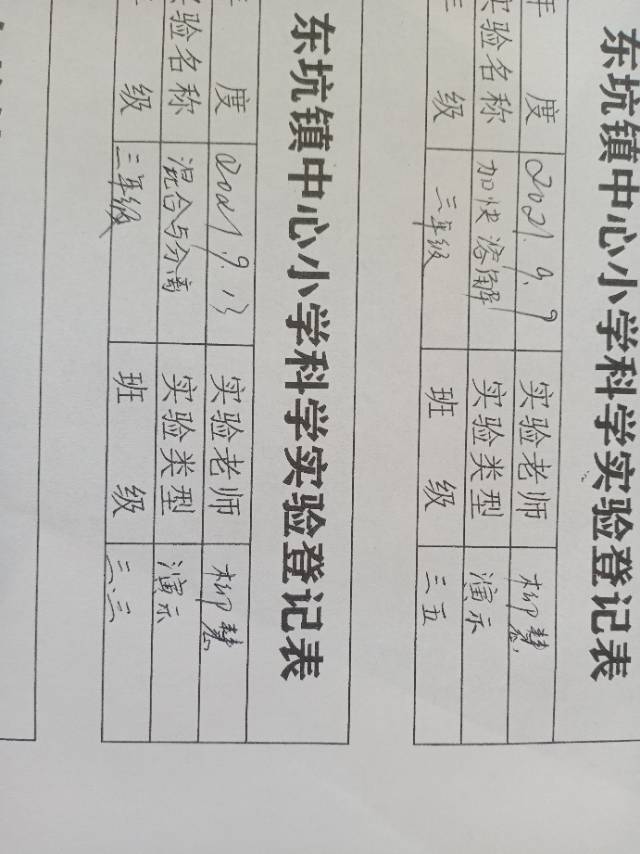 东坑镇中心小学科学实验登记表
年 度 2021.9.9 实验老师 柳慧
实验名称 加快溶解 实验类型 演示
年 级 三年级 班 级 三五
东坑镇中心小学科学实验登记表
年 度 2021.9.13 实验老师 柳慧
实验名称 混合与分离 实验类型 演示
级 三年级 班 级 三.三